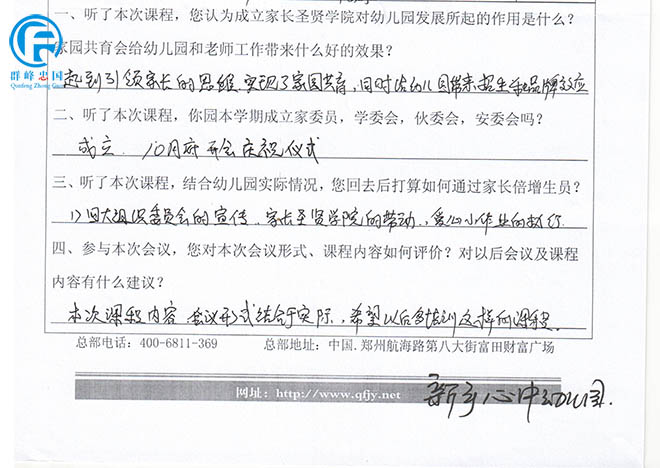 一、听了本次课程，您认为成立家长圣贤学院对幼儿园发展所起的作用是什么？
家园共育会给幼儿园和老师工作带来什么好的效果？
群峰忠国
Qunfeng Zhong Guo
起到引领家长的思维，实现了家园共育，同时给幼儿园带来招生和品牌效应
二、听了本次课程，你园本学期成立家委员，学委会，伙委会，安委会吗？
成立．10月府开会庆祝仪式
三、听了本次课程，结合幼儿园实际情况，您回去后打算如何通过家长倍增生员？
1）四大组织委员会的宣传、家长圣贤学院的带动、爱心小作业的执行
四、参与本次会议，您对本次会议形式、课程内容如何评价？对以后会议及课程
内容有什么建议？
本次课程内容 会议形式结合于实际，希望以后多培训这样的课程．
总部电话：400-6811-369 总部地址：中国.郑州航海路第八大街富田财富广场
网址：http://www.qfjy.net
心中幼儿园．